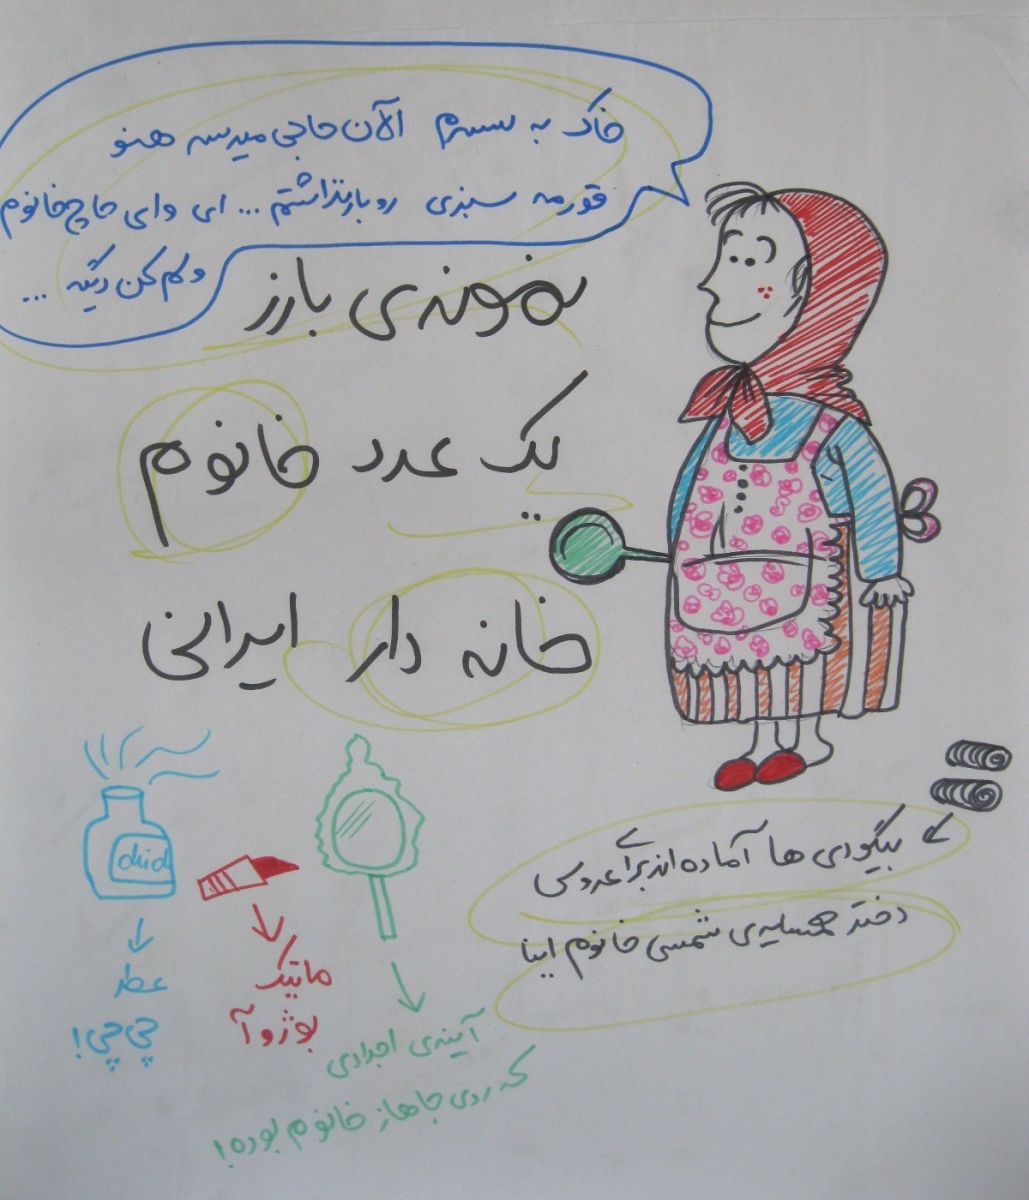 خاک به سسرم الآن حاجی میرسه هنو
قورمه سبزی رو بار نذاشتم ... ای وای حاج خانوم
ولم کن دیگه ...
نمونه‌ی بارز
یک عدد خانوم
خانه دار ایرانی
بیگودی ها آماده اند برای عروسی
دختر همسایه‌ی شمسی خانوم اینا
عطر
چی چی!
ماتیک
بوژوآ
آینه‌ی اجدادی
که روی جاهاز خانوم بوده!